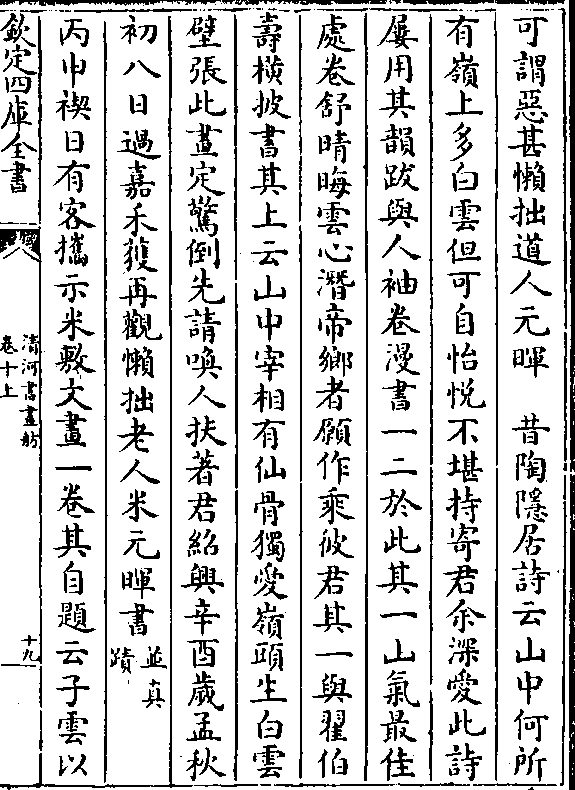 可謂惡甚懶拙道人元暉　昔陶隱居詩云山中何所
有嶺上多白雲但可自怡悅不堪持寄君余深愛此詩
屢用其韻跋與人袖卷漫書一二於此其一山氣最佳
處卷舒晴晦雲心潛帝鄉者願作乘彼君其一與翟伯
壽橫披書其上云山中宰相有仙骨獨愛嶺頭生白雲
壁張此畫定驚倒先請喚人扶著君紹興辛酉歲孟秋
初八日過嘉禾獲再觀懶拙老人米元暉書並真蹟
丙申禊日有客攜示米敷文畫一卷其自題云子雲以
欽定四庫全書
清河書畫舫
卷十上
十九